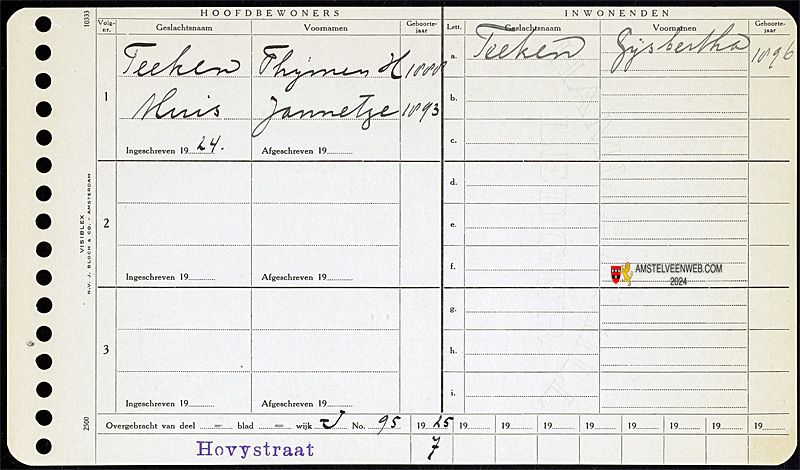 HOOFDBEWONERS INWONENDEN
Volg-nr. Geslachtsnaam Voornamen Geboorte-jaar Lett. Geslachtsnaam Voornamen Geboorte-jaar
Teeken Thijmen H 1888 a. Teeken Gijsbertha 1896
1 Muis Jannetje 1893 b.
Ingeschreven 19 24. Afgeschreven 19 c.
d.
2 e.
Ingeschreven 19 Afgeschreven 19 f.
AMSTELVEENWEB.COM
2024
g.
3 h.
Ingeschreven 19 Afgeschreven 19 i.
Overgebracht van deel — blad — wijk J No. 95 19 25 19 19 19 19 19 19 19 19
Hovystraat 7
10333
VISIBLEX
N.V. J. BLOCH & CO. - AMSTERDAM
2500